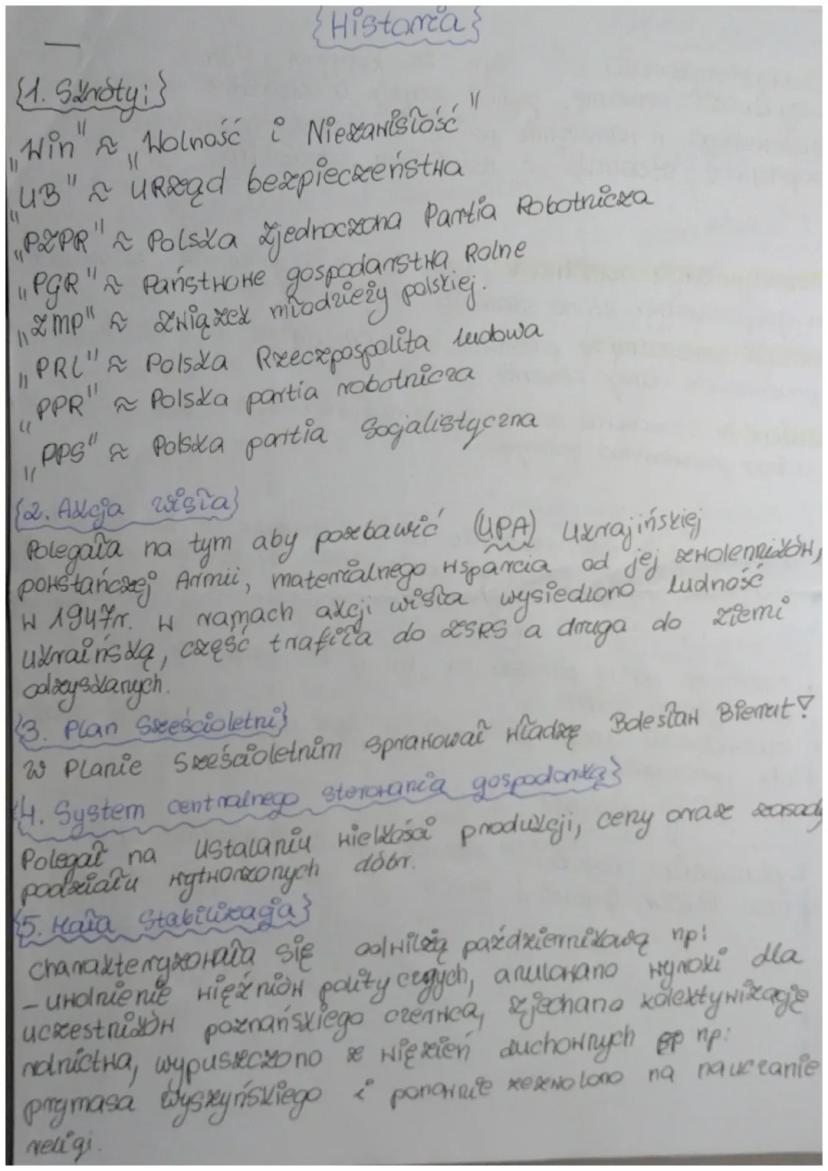 {Historia}
{1. Skróty:}
„Win" ≈ „Wolność i Niezawisłość"
„UB" ≈ URząd bezpieczeństwa
„PZPR" ≈ Polska Zjednoczona Partia Robotnicza
„PGR" ≈ Państwowe gospodarstwa Rolne
„ZMP" ≈ Związek młodzieży polskiej.
„PRL" ≈ Polska Rzeczpospolita ludowa
„PPR" ≈ Polska partia robotnicza
„PPS" ≈ Polska partia Socjalistyczna
{2. Akcja wisła}
Polegała na tym aby pozbawić (UPA) Ukrajińskiej
powstańczej Armii, materialnego wsparcia od jej zwolenników,
w 1947r. w ramach akcji wisła wysiedlono ludność
ukraińską, część trafiła do ZSRS a druga do ziemi
odzyskanych.
{3. Plan Sześcioletni}
W Planie Sześcioletnim sprawował władzę Bolesław Bierut!
{4. System centralnego sterowania gospodarką}
Polegał na ustalaniu wielkości produkcji, ceny oraz zasady
podziału wytworzonych dóbr.
{5. Mała Stabilizacja}
charakteryzowała się odwilżą październikową np:
- uwolnienie więźniów politycznych, anulowano wyroki dla
uczestników poznańskiego czerwca, zjechana kolektywizację
rolnictwa, wypuszczono z więzień duchownych np:
prymasa Wyszyńskiego i ponownie zezwolono na nauczanie
religi.